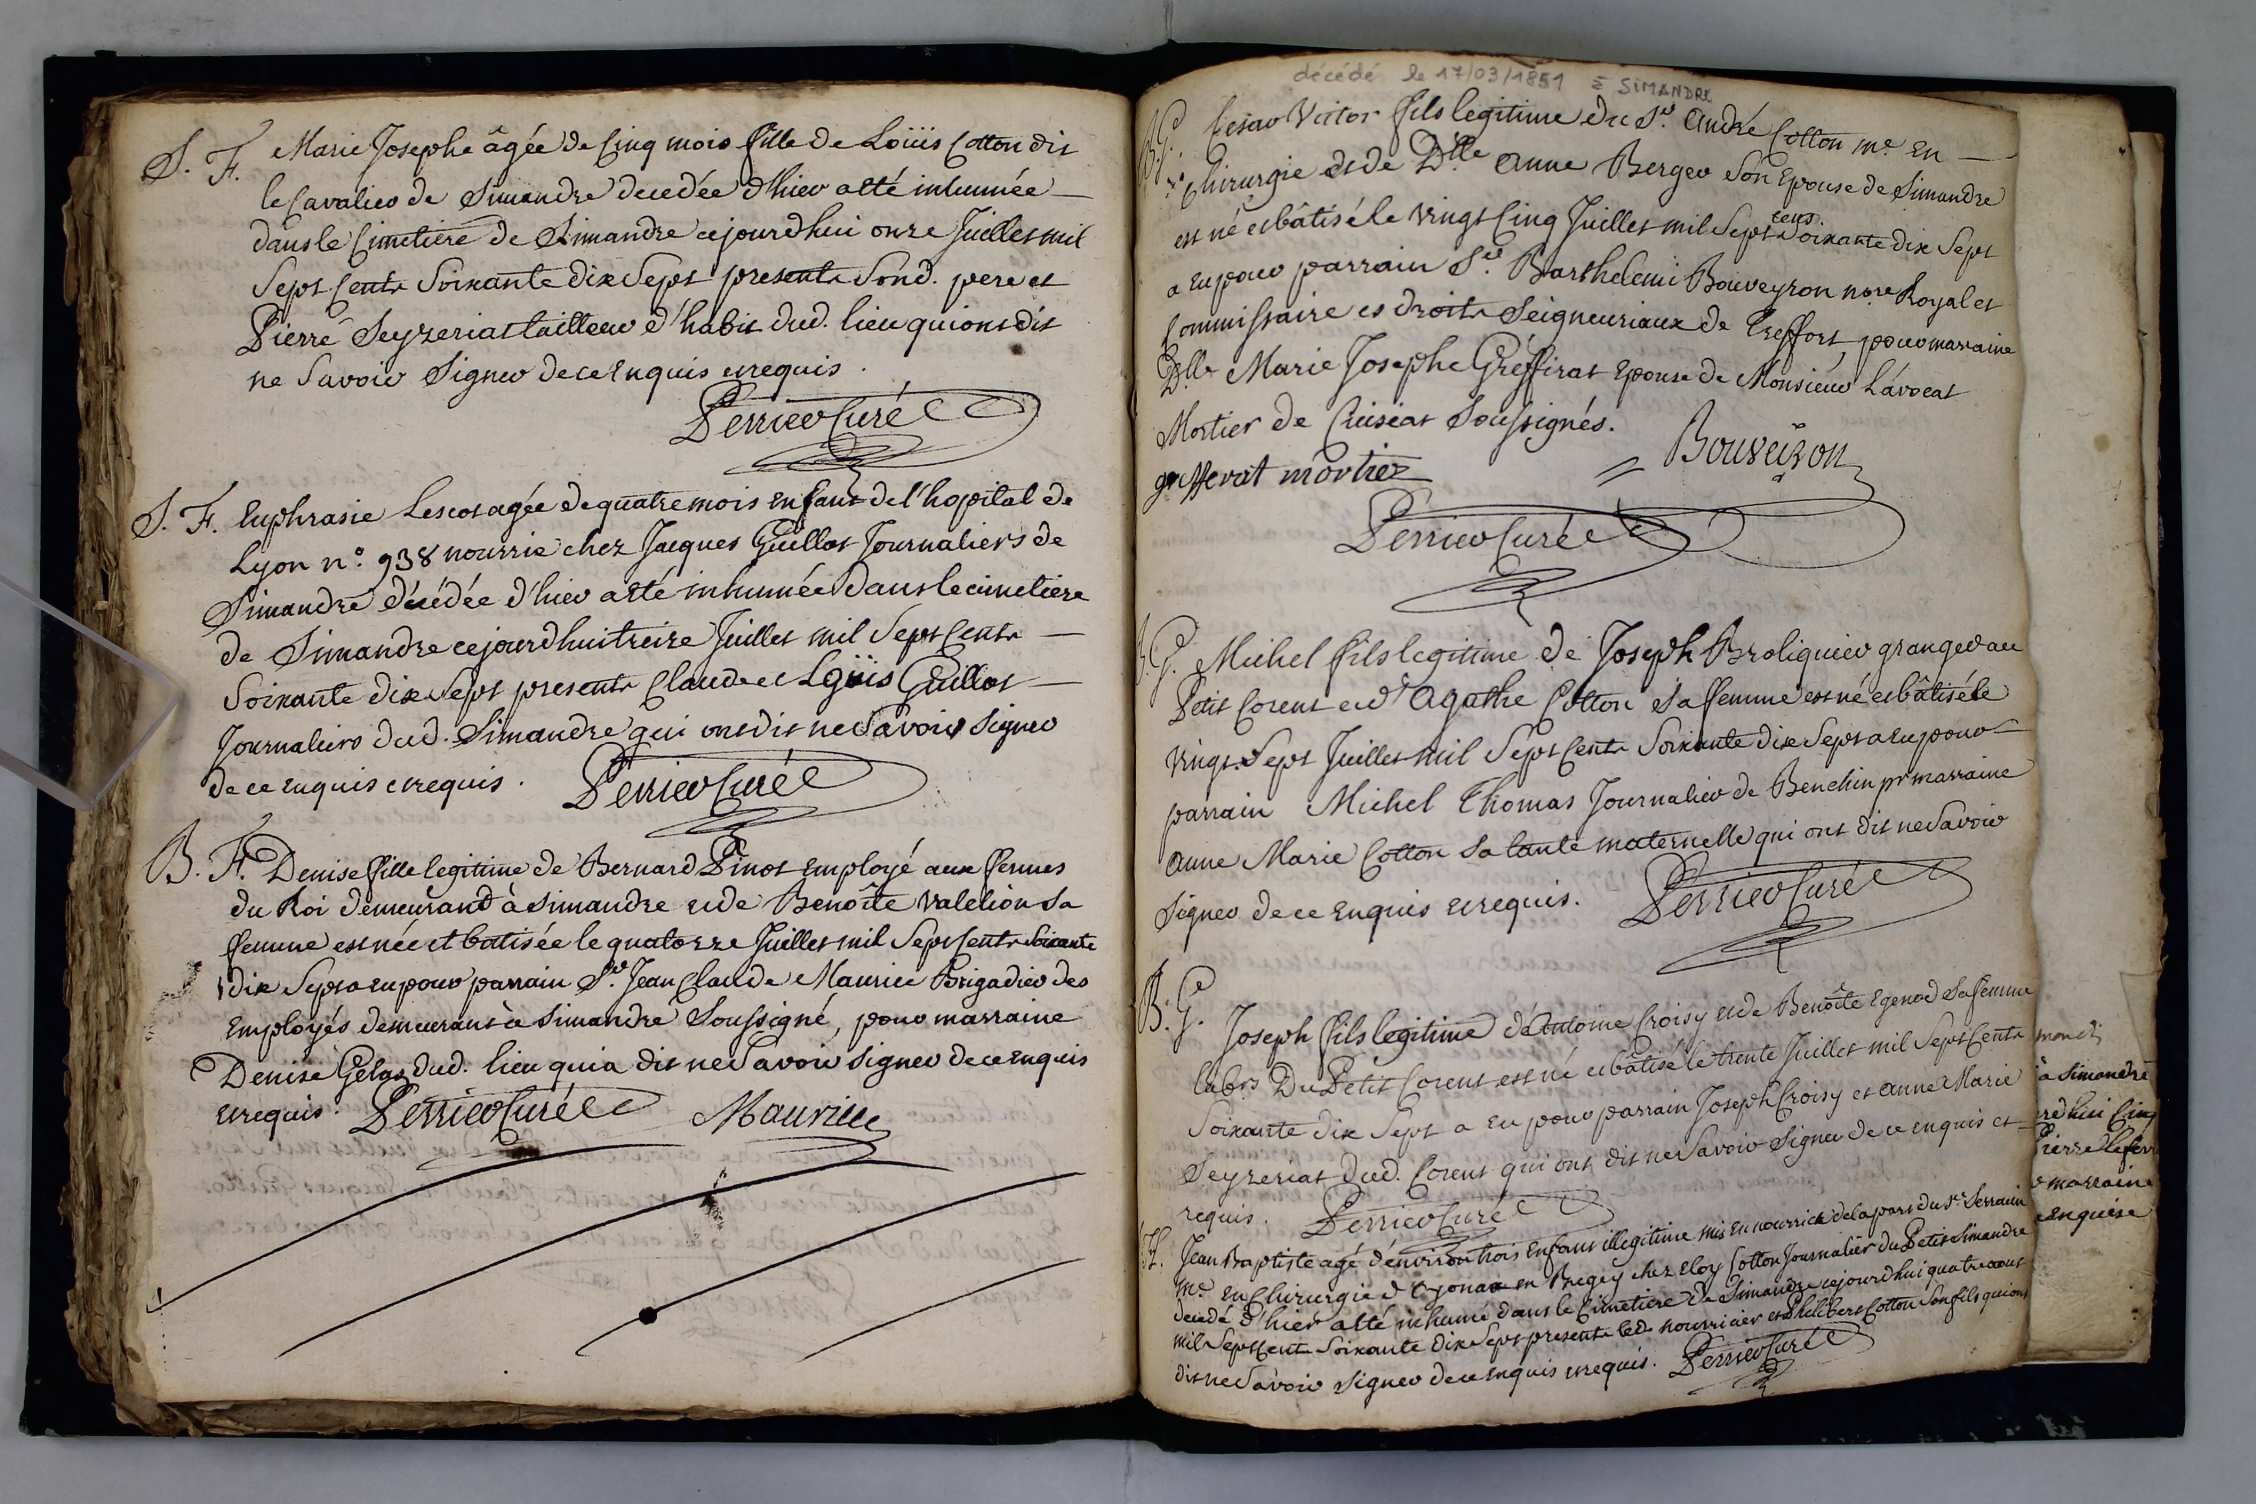 S. F. Marie Josephe âgée de Cinq mois fille de Loüis Cotton dit
le Cavalier de Simandre decedée d'hier a été inhumée
dans le Cimetière de Simandre cejourdhui onze Juillet mil
Sept Cents Soixante dix Sept presents Sond. pere et
Pierre Seyzeriat tailleur d'habit dud. lieu qui ont dit
ne Savoir Signer de ce Enquis et requis.
Perrier Curé
S. F. Euphrasie Lescot agée de quatre mois Enfant de l'hopital de
Lyon n°. 938 nourrie chez Jacques Guillot Journaliers de
Simandre décédée d'hier a été inhumée dans le cimetiere
de Simandre cejourdhui treize Juillet mil Sept Cents
Soixante dix Sept presents Claude et Loüis Guillot
Journaliers dud. Simandre qui ont dit ne Savoir Signer
de ce enquis et requis. Perrier Curé
B. F. Denise fille legitime de Bernard Pinot Employé aux fermes
du Roi demeurant à Simandre et de Benoîte Valelion Sa
femme est née et batisée le quatorze Juillet mil Sept Cents Soixante
dix Sept a eu pour parrain Sr. Jean Claude Maurice Brigadier des
Employés demeurant à Simandre Soussigné, pour marraine
Denise Gelas dud. lieu qui a dit ne Savoir Signer de ce enquis
et requis. Perrier Curé Maurice
décédé le 17/03/1851 à SIMANDRE
B. G. Cesar Victor fils legitime du Sr. André Cotton me. En
Chirurgie et de Dlle Anne Berger Son Epouse de Simandre
est né et bâtisé le vingt Cinq Juillet mil Sept cens Soixante dix Sept
a eu pour parrain Sr. Barthelemi Bouveyron nore Royal et
Commissaire es droits Seigneuriaux de Treffort pour marraine
Dlle Marie Josephe Greffirat Epouse de Monsieur L'avocat
Mortier de Cuiseat Soussignés.
grefferat mortier Bouveiron
Perrier Curé
B. G. Michel fils legitime de Joseph Broliquier granger au
Petit Corent et d'Agathe Cotton Sa femme est né et bâtisé le
vingt Sept Juillet mil Sept Cents Soixante dix Sept a eu pour
parrain Michel Thomas Journalier de Benchin pr marraine
Anne Marie Cotton Sa tante maternelle qui ont dit ne Savoir
Signer de ce Enquis et requis. Perrier Curé
B. G. Joseph fils legitime d'Antoine Croisy et de Benoîte Egenod Sa femme
labrs Du Petit Corent est né et bâtisé le trente Juillet mil Sept Cents
Soixante dix Sept a eu pour parrain Joseph Croisy et Anne Marie
Seyzeriat dud. Corent qui ont dit ne Savoir Signer de ce enquis et
requis. Perrier Curé
Jean Baptiste agé d'environ trois Enfant illegitime mis en nourrice de la part du Sr Serrain
me. En Chirurgie d'Oyonax en Bugey chez Eloy Cotton Journalier du Petit Simandre
decedé d'hier a été inhumé dans le Cimetiere de Simandre cejourdhui quatre aout
mil Sept Cent Soixante dix Sept presents led. nourricier et Philibert Cotton Son fils qui ont
dit ne Savoir Signer de ce enquis et requis. Perrier Curé
à Simandre
rdhui Cinq
Pierre Lefev
marraine
enquise